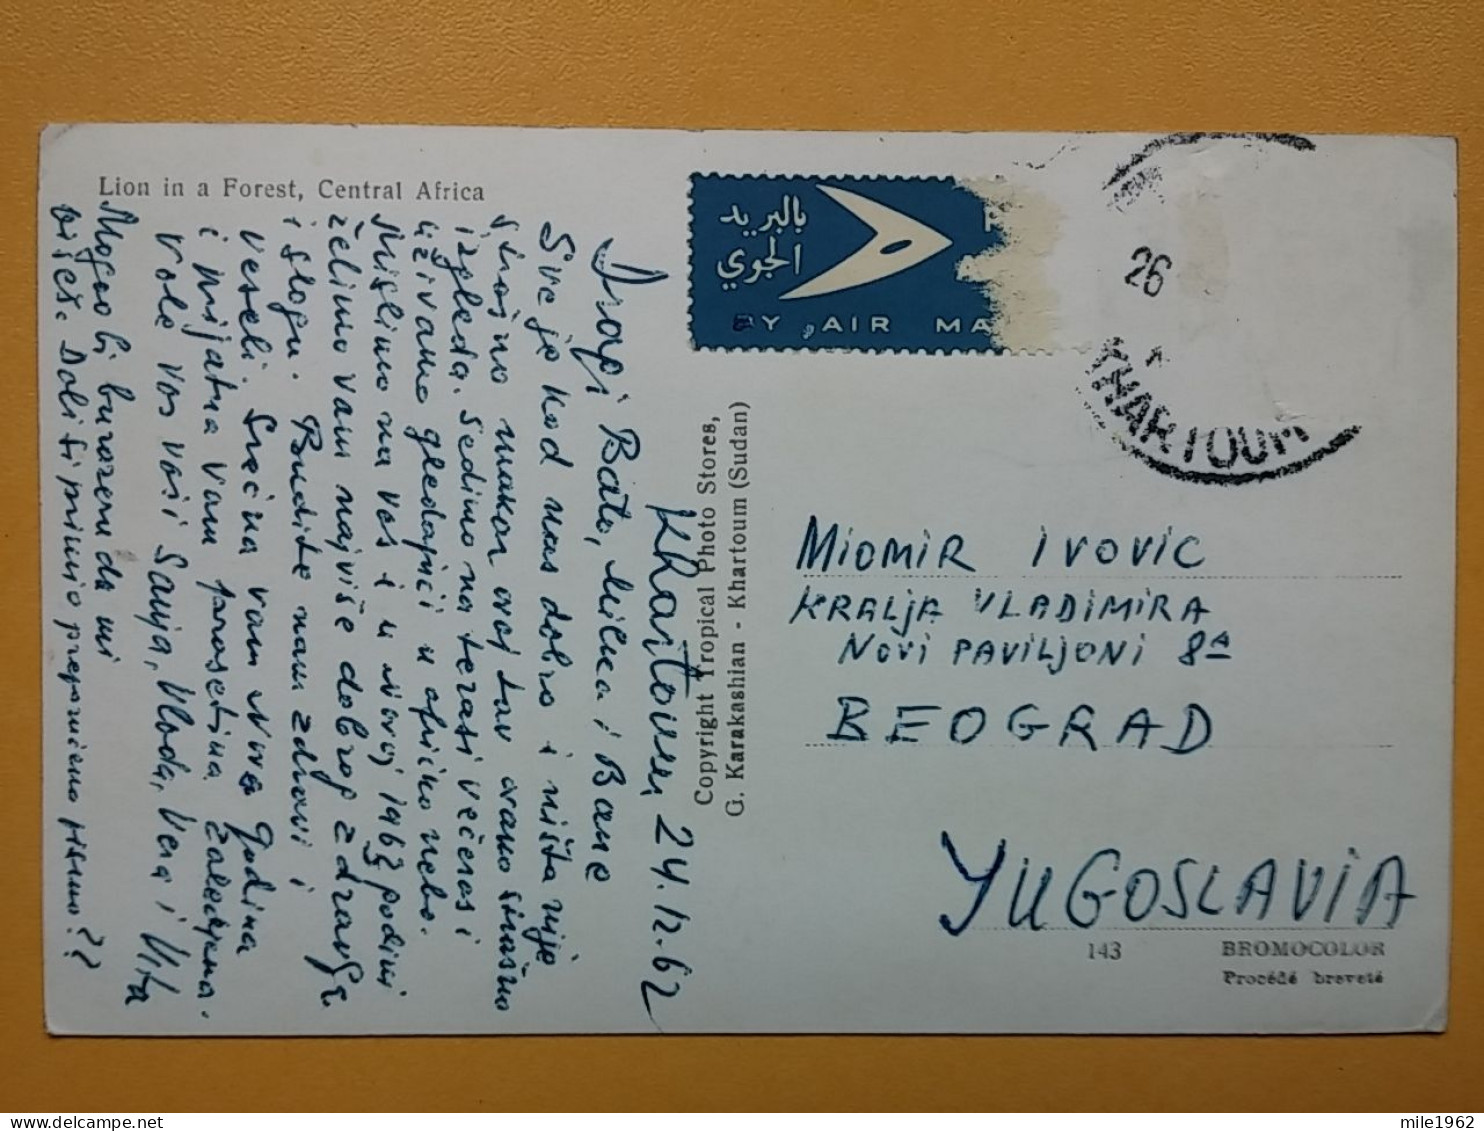 Lion in a Forest, Central Africa
بالبريد
الجوي
BY AIR MA
26
KHARTOUM
Copyright Tropical Photo Stores,
G. Karakashian - Khartoum (Sudan)
Khartoum 24.12.62
Dragi Bato, Milica i Bane
Sve je kod nas dobro i ništa nije
strašno makar ovaj lav ovamo strašno
izgleda. Sedimo na terasi večeras i
uživamo gledajući u afričko nebo.
Mislimo na vas i u novoj 1963 godini
želimo vam najviše dobrog zdravlja
i slogu. Budite nam zdravi i
veseli. Srećna vam Nova Godina
i prijatna vam
Vole vas vaši Sanja, Vlada, Vera i Mita
Moguo bi burazeru da mi
pišeš. Da li ti pismo preporučeno
MIOMIR IVOVIC
KRALJA VLADIMIRA
NOVI PAVILJONI 8A
BEOGRAD
YUGOSLAVIA
143 BROMOCOLOR
Procédé breveté
mile1962